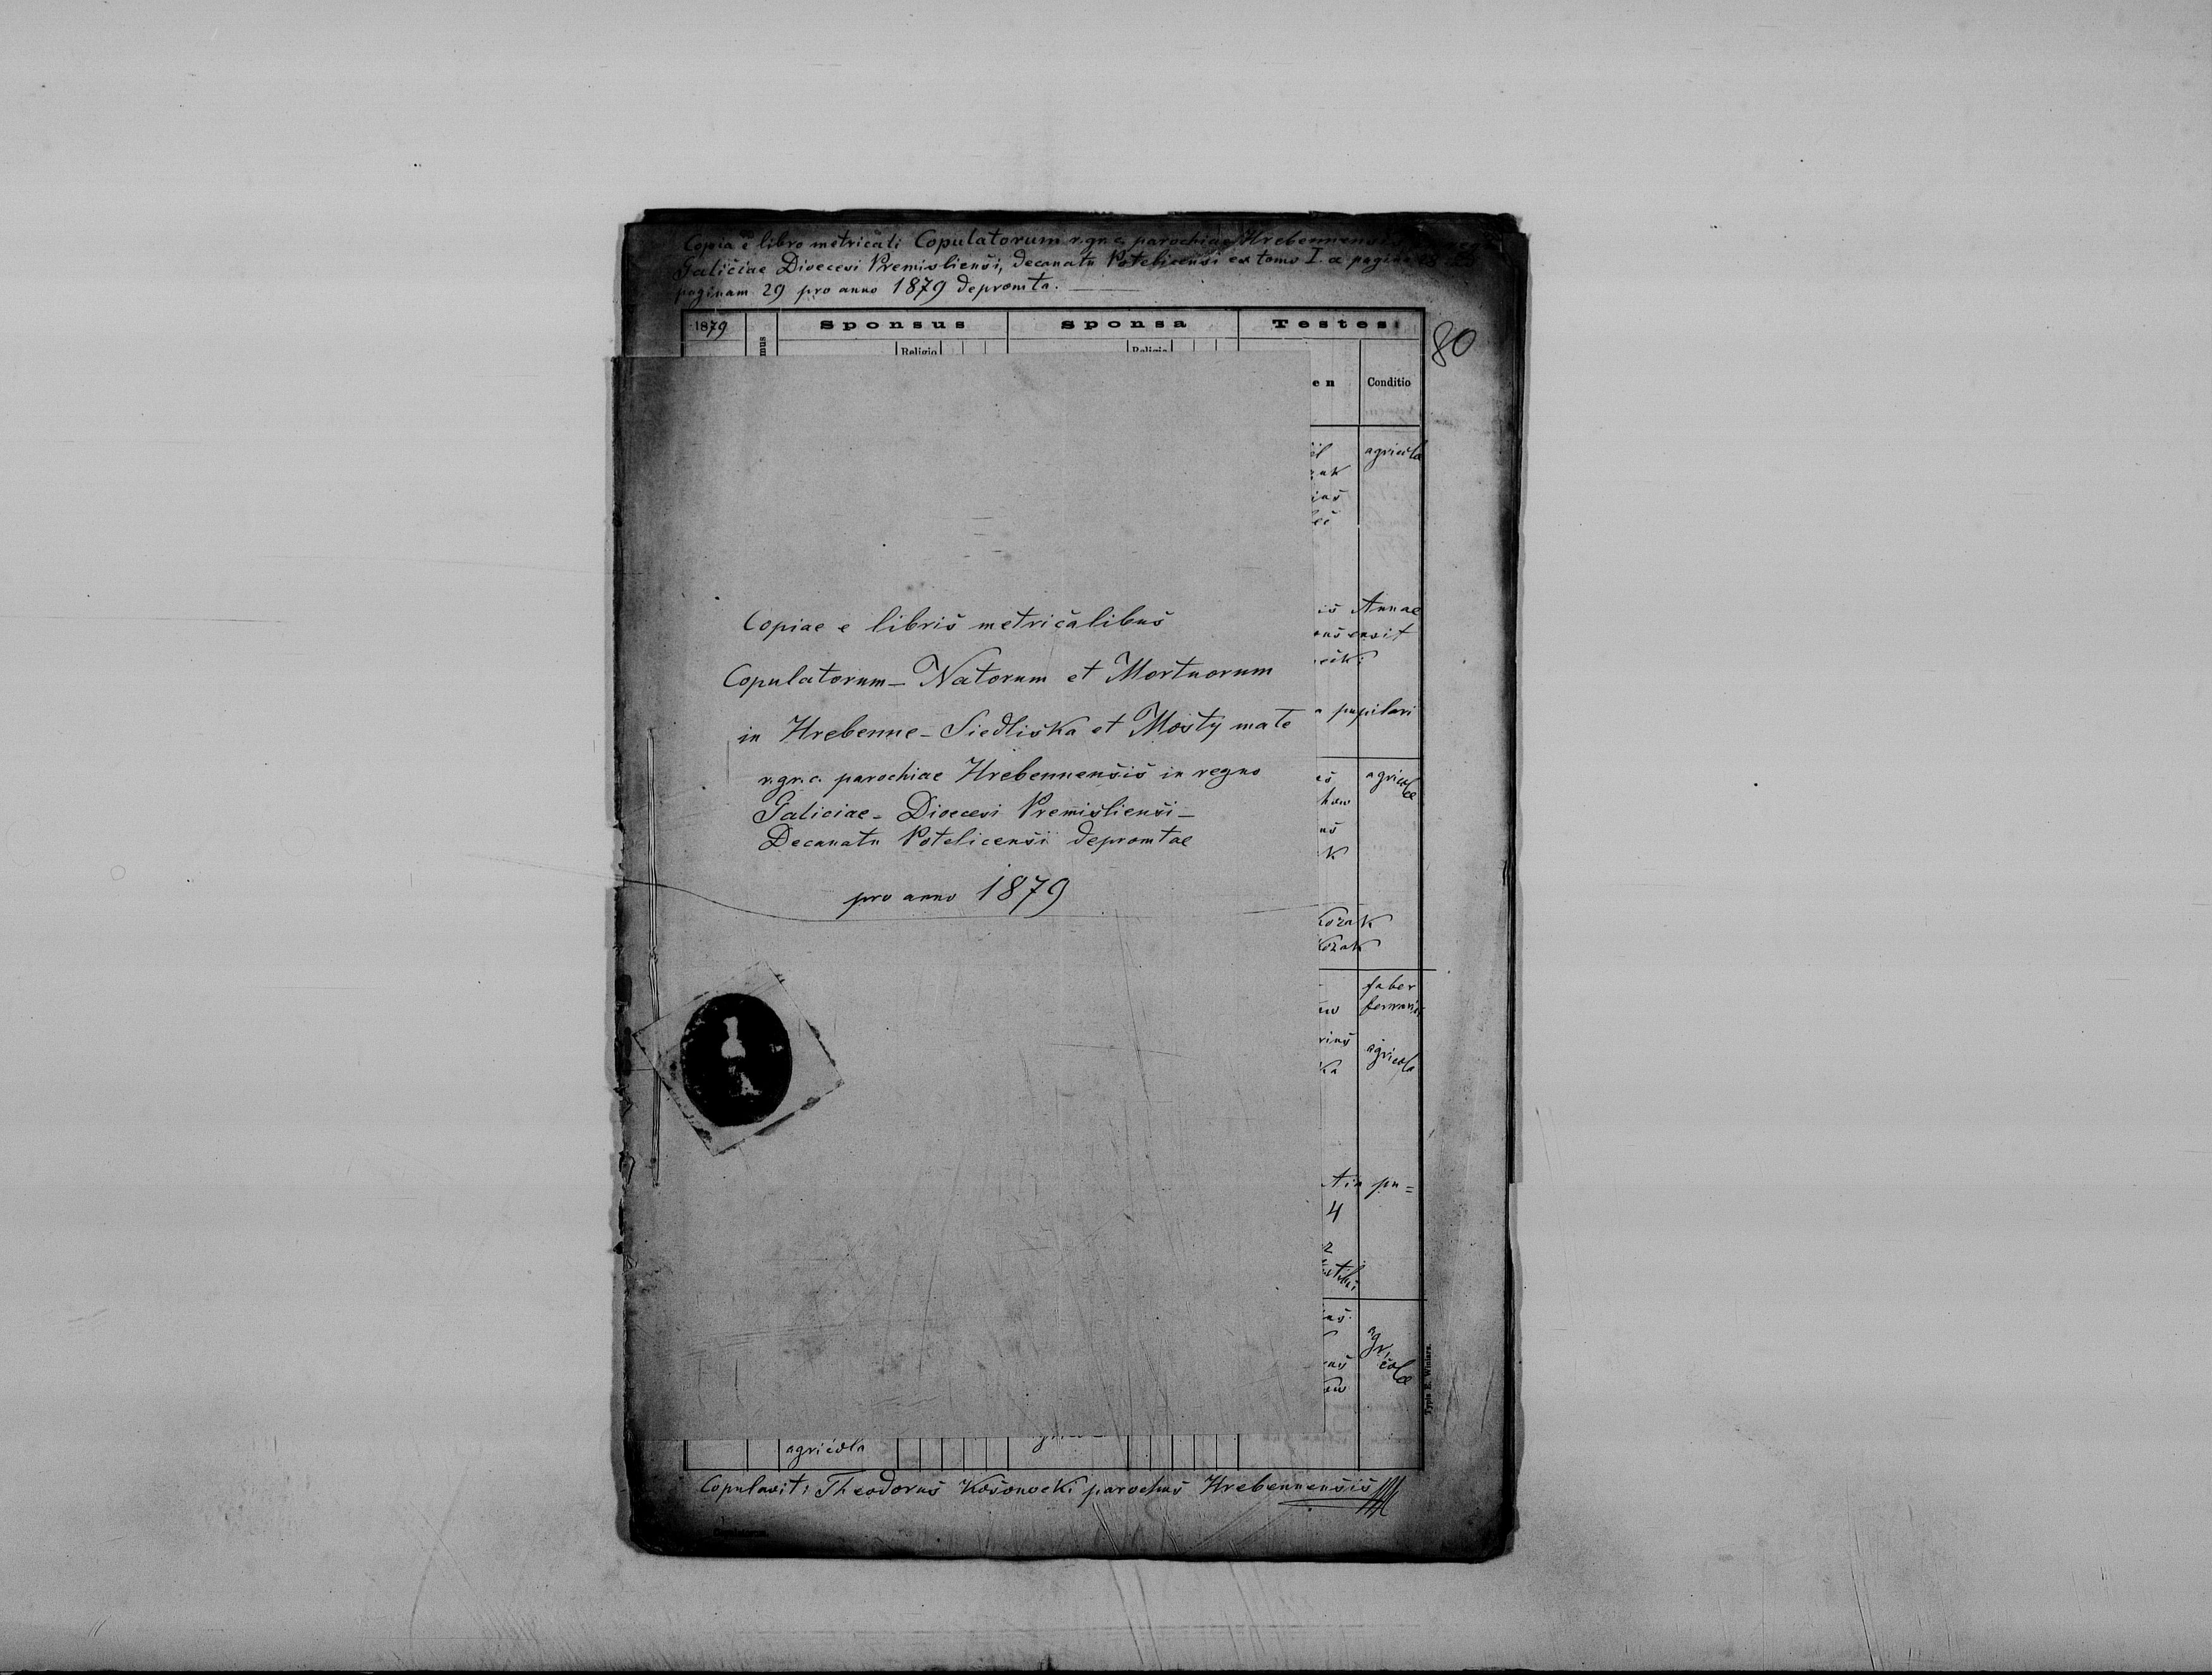 Copia e libro metricali Copulatorum r.gr.c. parochiae Hrebennensis
Galiciae Dioecesi Premisliensi, decanatu Potelicensi ex tomo I. a pagina
paginam 29 pro anno 1879 depromta.
1879 Sponsus Sponsa Testes
80
Religio Religio
Conditio
agricola
Copiae e libris metricalibus
Copulatorum - Natorum et Mortuorum
in Hrebenne - Siedliska et Mosty małe
r.gr.c. parochiae Hrebennensis in regno
Galiciae - Dioecesi Premisliensi -
Decanatu Potelicensi depromtae
pro anno 1879
Annae
pupilari
agricolae
Kozak
Kozak
faber
agricola
pu=
4
2
agricolae
Typis E. Winiarz.
agricola
Copulavit: Theodorus Kosonocki parochus Hrebennensis